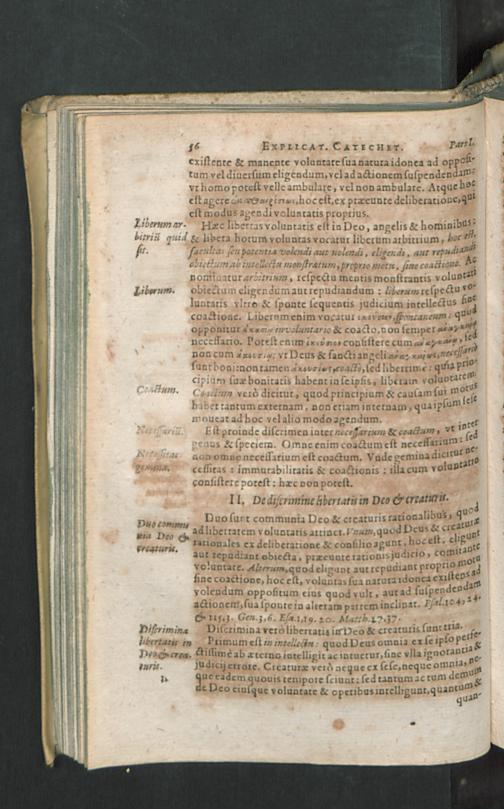 56 EXPLICAT. CATECHET. Pars I.
existente & manente voluntate sua natura idonea ad opposi-
tum vel diuersum eligendum, vel ad actionem suspendendam:
vt homo potest velle ambulare, vel non ambulare. Atque hoc
est agere hoc est, ex præeunte deliberatione, qui
est modus agendi voluntatis proprius.
Liberum ar-
bitrii quid
sit.
Hæc libertas voluntatis est in Deo, angelis & hominibus:
& libera horum voluntas vocatur liberum arbitrium, hoc est,
facultas seu potentia volendi aut nolendi, eligendi, aut repudiandi
obiectum ab intellectu monstratum, proprio motu, sine coactione. Ac
nominatur arbitrium, respectu mentis monstrantis voluntati
Liberum.
obiectum eligendum aut repudiandum: liberum respectu vo-
luntatis vltro & sponte sequentis judicium intellectus sine
coactione. Liberum enim vocatur ἑκούσιον, spontaneum: quod
opponitur ἀκουσίῳ involuntario & coacto, non semper ἀναγκαίῳ
necessario. Potest enim ἑκούσιον consistere cum ἀναγκαίῳ, sed
non cum ἀκουσίῳ: vt Deus & sancti angeli ἀναγκαίως, necessariò
sunt boni: non tamen ἀκουσίως, coactè, sed liberrimè: quia prin-
cipium suæ bonitatis habent in seipsis, liberam voluntatem.
Coactum.
Coactum verò dicitur, quod principium & causam sui motus
habet tantum externam, non etiam internam, qua ipsum sese
moueat ad hoc vel alio modo agendum.
Necessariū.
Est proinde discrimen inter necessarium & coactum, vt inter
genus & speciem. Omne enim coactum est necessarium: sed
Necessitas
gemina.
non omne necessarium est coactum. Vnde gemina dicitur ne-
cessitas: immutabilitatis & coactionis: illa cum voluntario
consistere potest: hæc non potest.
II. De discrimine libertatis in Deo & creaturis.
Duo commu
nia Deo &
creaturis.
Duo sunt communia Deo & creaturis rationalibus, quod
ad libertatem voluntatis attinet. Vnum, quod Deus & creaturæ
rationales ex deliberatione & consilio agunt, hoc est, eligunt
aut repudiant obiecta, præeunte rationis judicio, comitante
voluntate. Alterum, quod eligunt aut repudiant proprio motu
sine coactione, hoc est, voluntas sua natura idonea existens ad
volendum oppositum eius quod vult, aut ad suspendendam
actionem, sua sponte in alteram partem inclinat. Psal. 104, 24.
& 115.3. Gen. 3.6. Esa. 1.19. 20. Matth. 27.37.
Discrimina
libertatis in
Deo & crea-
turis.
1.
Discrimina verò libertatis in Deo & creaturis sunt tria.
Primum est in intellectu: quod Deus omnia ex se ipso perfe-
ctissimè ab æterno intelligit ac intuetur, sine vlla ignorantia &
judicij errore. Creaturæ verò neque ex sese, neque omnia, ne-
que eadem quouis tempore sciunt: sed tantum ac tum demum
de Deo eiusque voluntate & operibus intelligunt, quantum &
quan-